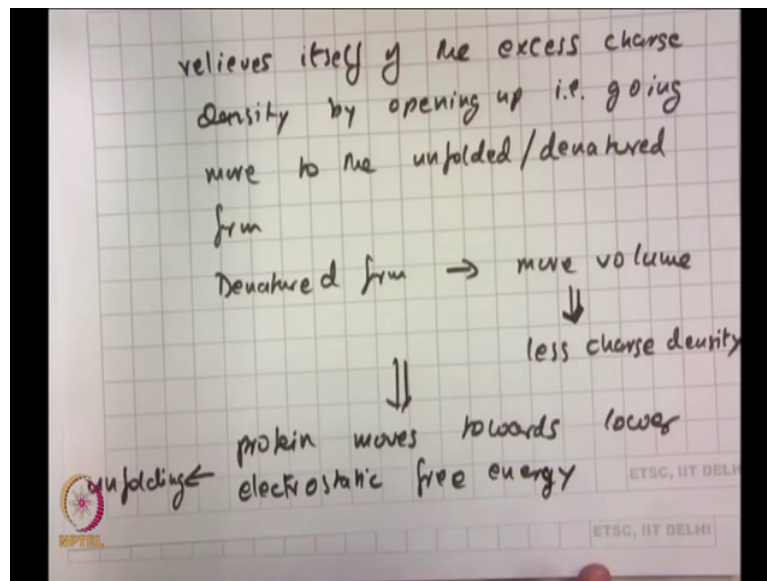 relieves itself of the excess charge
density by opening up i.e. going
more to the unfolded/denatured
form
Denatured form → more volume
⇓
less charge density
⇓
protein moves towards lower
unfolding ← electrostatic free energy
ETSC, IIT DELH
NPTEL
ETSC, IIT DELHI